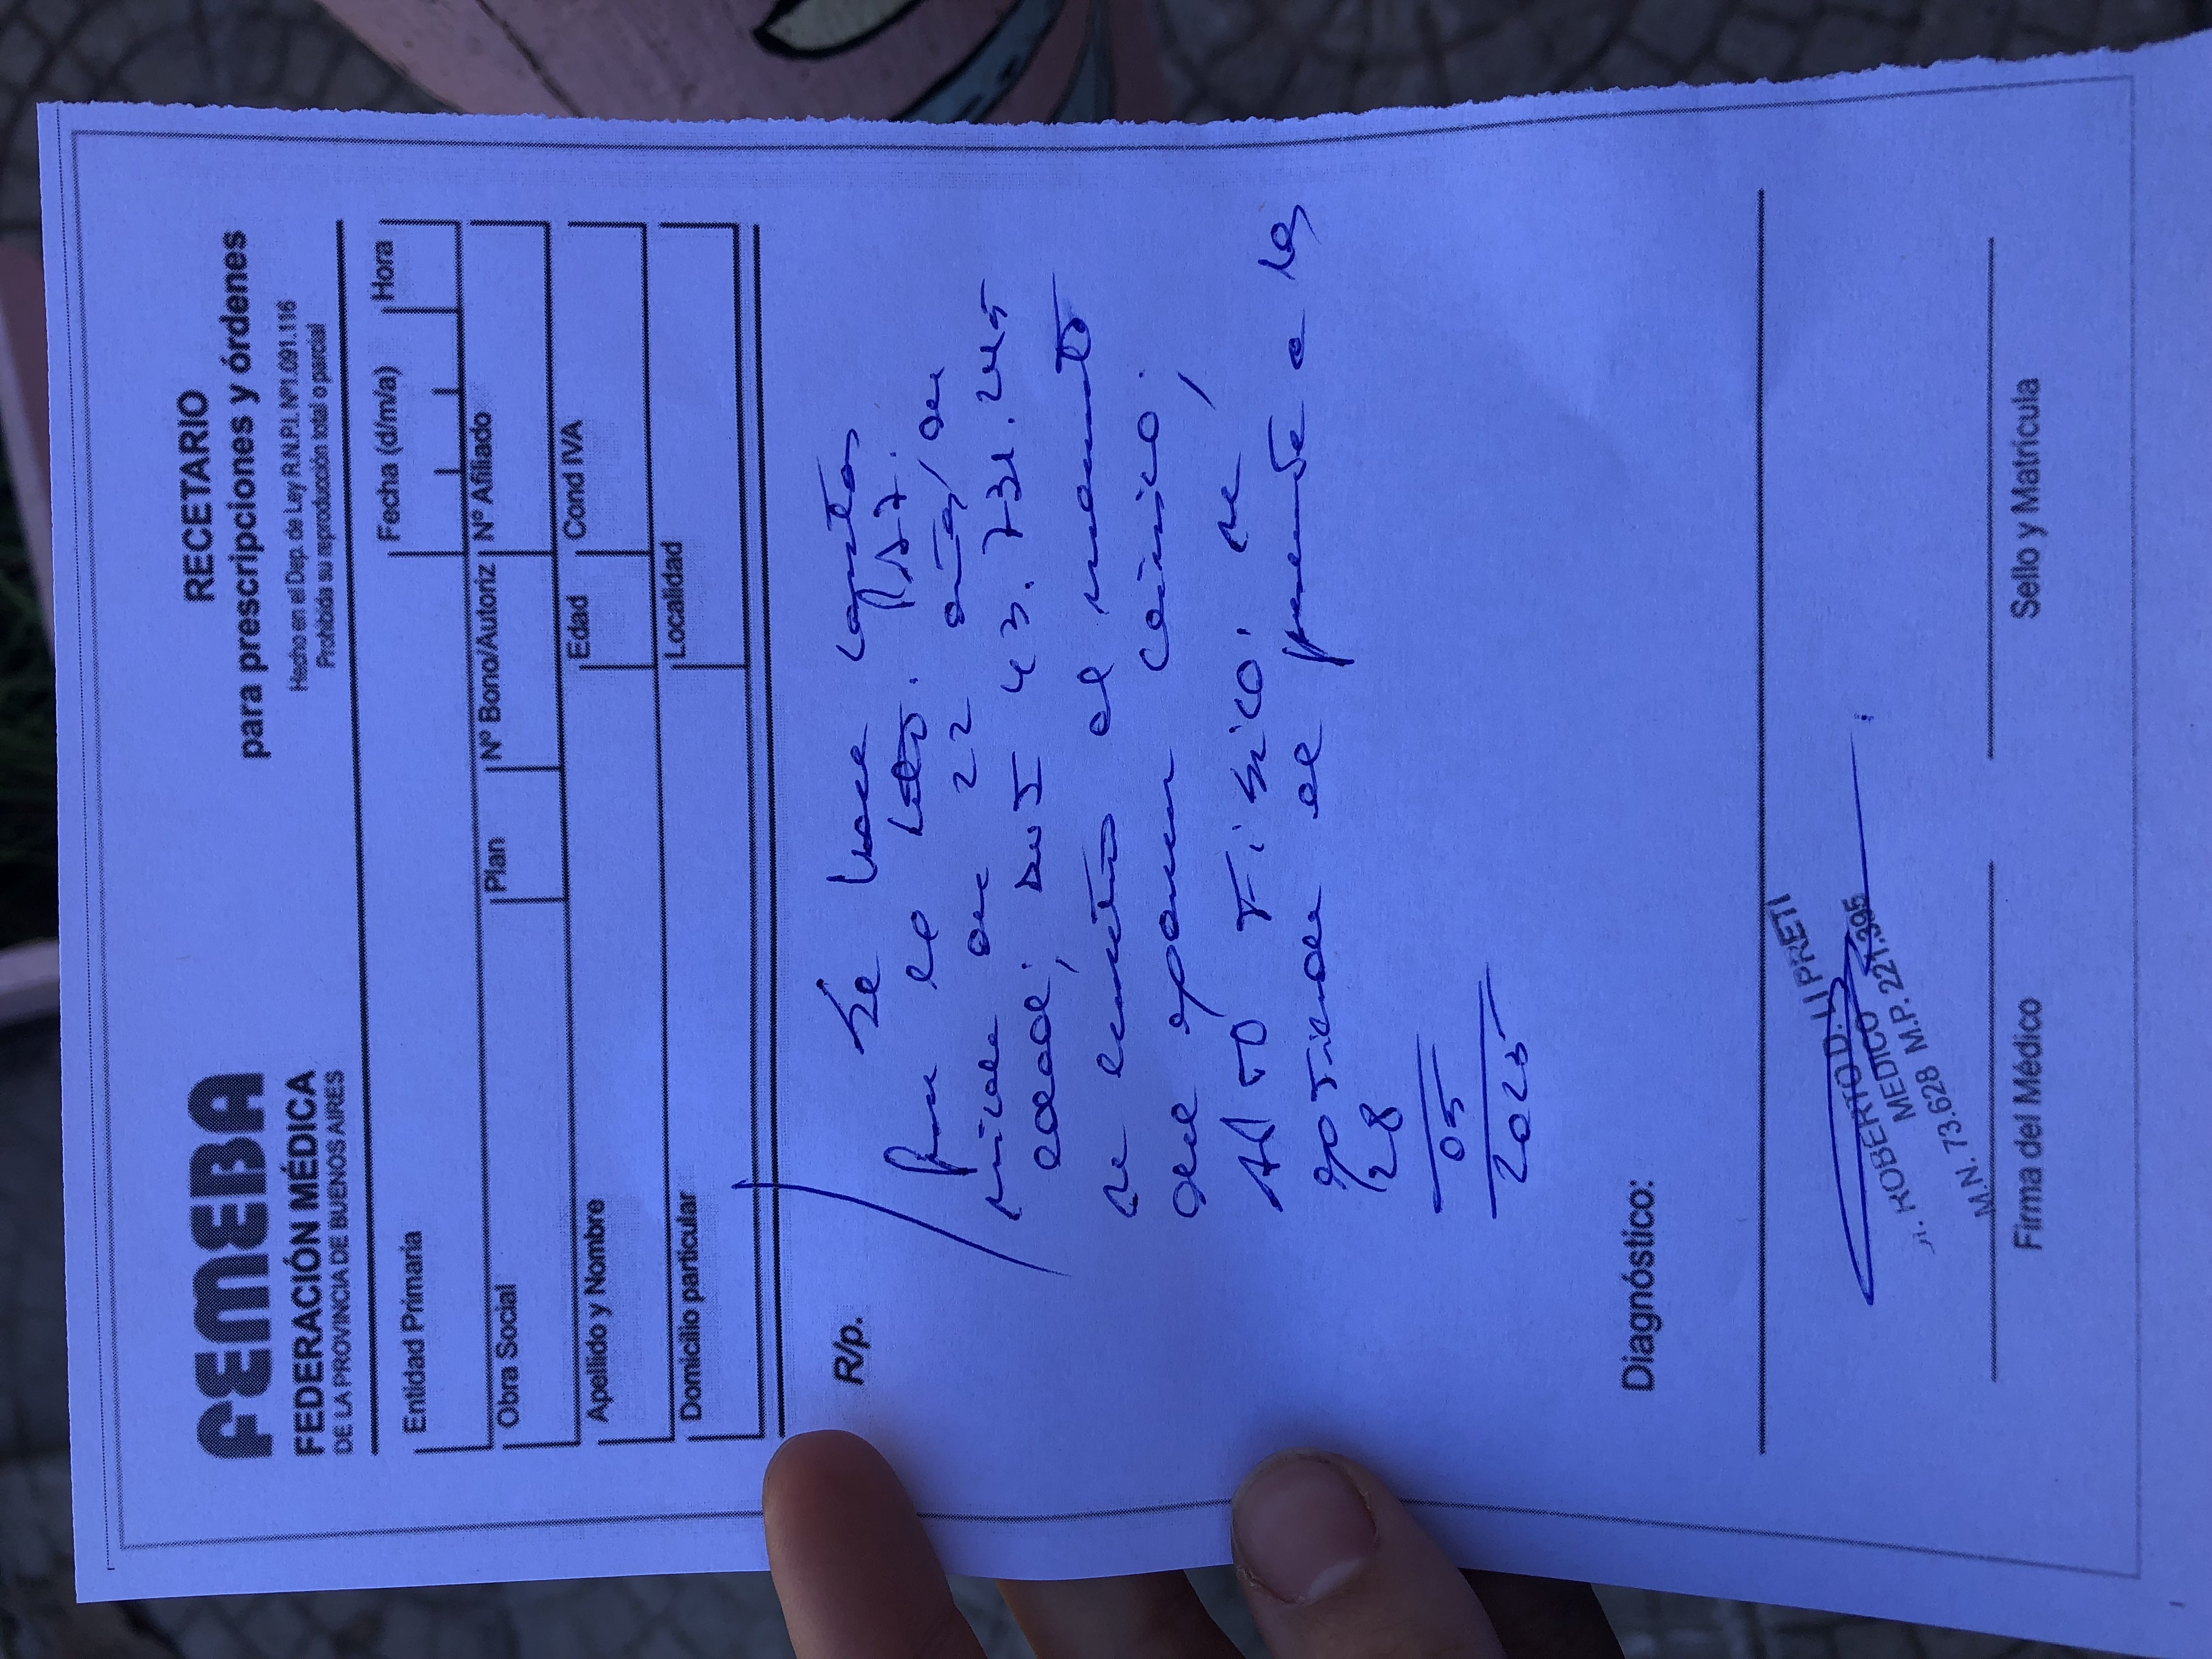 FEMEBA
FEDERACIÓN MÉDICA
DE LA PROVINCIA DE BUENOS AIRES
RECETARIO
para prescripciones y órdenes
Hecho en el Dep. de Ley R.N.P.I. Nº1.091.116
Prohibida su reproducción total o parcial
Entidad Primaria
Fecha (d/m/a) Hora
Obra Social Plan Nº Bono/Autoriz Nº Afiliado
Apellido y Nombre Edad Cond IVA
Domicilio particular Localidad
R/p.
Se hace constar
que
de 22 años, de
edad, DNI 43.731.245
se encuentra al momento
del examen clínico,
APTO FISICO. Se
extiende el presente a los
28
05
2025
Diagnóstico:
ROBERTO D. LI PRETI
MEDICO
M.N. 73.628 M.P. 221.395
Firma del Médico Sello y Matrícula